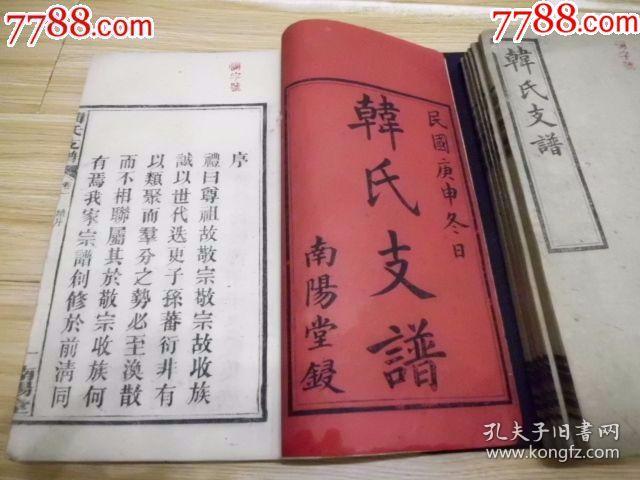 7788.com
7788.com
7788.com
韓氏支譜
民國庚申冬日
韓氏支譜
南陽堂鋟
序
禮曰尊祖故敬宗敬宗故收族
誠以世代迭更子孫蕃衍非有
以類聚而羣分之勢必至渙散
而不相聯屬其於敬宗收族何
有焉我家宗譜創修於前清同
南陽堂
孔夫子旧书网
www.kongfz.com